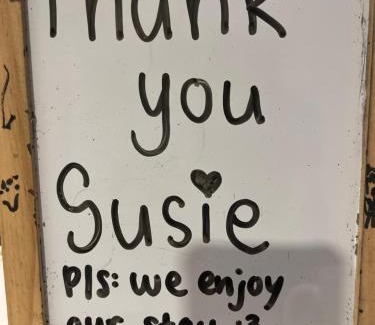 Thank
you
Susie
Pls: we enjoy
our stay :3